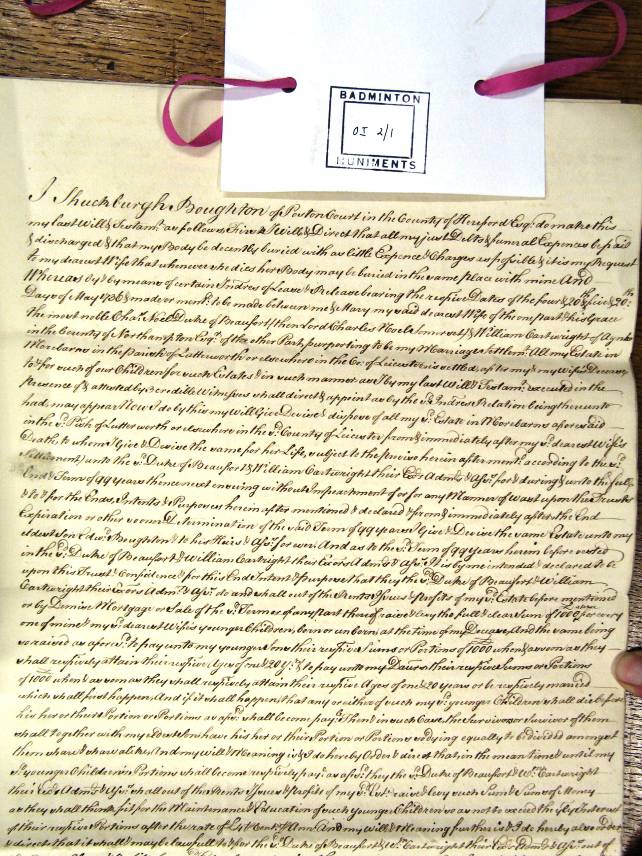 BADMINTON
OI 2/1
MUNIMENTS
I Shuckburgh Boughton of Poston Court in the County of Hereford Esqr. do make this
my last Will & Testamt. as follows First I Will & Direct that all my just Debts & funeral Expences be paid
& discharged & that my Body be decently buried with as little Expence & Charges as possible & it is my Request
to my dearest Wife that whenever she dies her Body may be buried in the same place with mine And
Whereas by & by means of certain Indres of Lease & Release bearing the respive Dates of the
Day of May 1736 & made or ment. to be made between me & Mary my said dearest Wife of the one part his Grace
the most noble Chas. Noel Duke of Beaufort (then Lord Charles Noel Somerset) & William Cartwright of Aynho
in the County of Northampton Esqr. of the other Part, purporting to be my Marriage Settlemt. All my Estate in
Morebarns in the parish of Lutterworth or elsewhere in the Co. of Leicester is settled after my & my Wife's Decease
to & for such of our Children for such Estates & in such manner as I by my last Will & Testamt. executed in the
Presence of & attested by 3 credible Witnesses shall direct & appoint as by the sd. Indres Relation being thereunto
had may appear Now I do by this my Will Give Devise & dispose of all my sd. Estate in Morebarns aforesaid
in the sd. Psh of Lutterworth or elsewhere in the sd. County of Leicester from & immediately after my sd. dearest Wife's
Death, to whom I Give & Devise the same for her Life, subject to the proviso herein after ment. according to the sd.
Settlement) unto the sd. Duke of Beaufort & William Cartwright their Exõrs Admrs. & Assns. for & during & unto the full
End & Term of 99 years thence next ensuing without Impeachment of or for any Manner of Wast upon the Trusts
& to & for the Ends, Intents & Purposes herein after mentioned & declared & from & immediately after the End
Expiration or other sooner Determination of the said Term of 99 years I Give & Devise the same Estate unto my
eldest Son Edwd. Boughton & to his Heirs & Assns. for ever. And as to the sd. Term of 99 years herein before vested
in the sd. Duke of Beaufort & William Cartwright their Exõrs Admrs. & Assns. It is by me intended & declared to be
upon this Trust & Confidence & for this End Intent & Purpose that they the sd. Duke of Beaufort & William
Cartwright their Exõrs Admrs. & Assns. do and shall out of the Rents Issues & profits of my sd. Estate before mentioned
or by Demise Mortgage or Sale of the sd. Termes of any part thereof raise & levy the full & clear Sum of £1000 for every
one of mine & my sd. dearest Wife's younger Children, born or unborn at the time of my Decease, And the same being
so raised as aforesd. to pay unto my younger Sons their respive Sums or Portions of 1000 when & as soon as they
shall respively attain their respive Ages of one & 20 yrs. & to pay unto my Daurs their respive Sums or Portions
of 1000 when & as soon as they shall respively attain their respive Ages of one & 20 years or be respively married
which shall first happen, And if it shall happen that any or either of such my sd. younger Children shall die before
his her or their Portion or Portions as aforesd. shall become payle. Then & in such Case the Survivors or Survivor of them
shall together with my eldest Son have his her or their Portion or Portions so dying equally to be divided amongst
them share & share alike, And my will & Meaning is & I do hereby Order & direct that in the mean time & until my
sd. younger Children's Portions shall become respively payle. as aforesd. they the sd. Duke of Beaufort & Wm. Cartwright
their Exõrs Admrs. & Assns. shall out of the Rents Issues & profits of my sd. Este. raise & levy such Sum & Sums of Money
as they shall think fit for the Maintenance & Education of such younger Children so as not to exceed the Interest
of their respive Portions after the rate of Cent. Ann. And my will & Meaning further is & I do hereby also order
& direct that it shall & may be lawfull to & for the sd. Duke of Beaufort & Wm. Cartwright their Exõrs Admrs. & Assns. out of